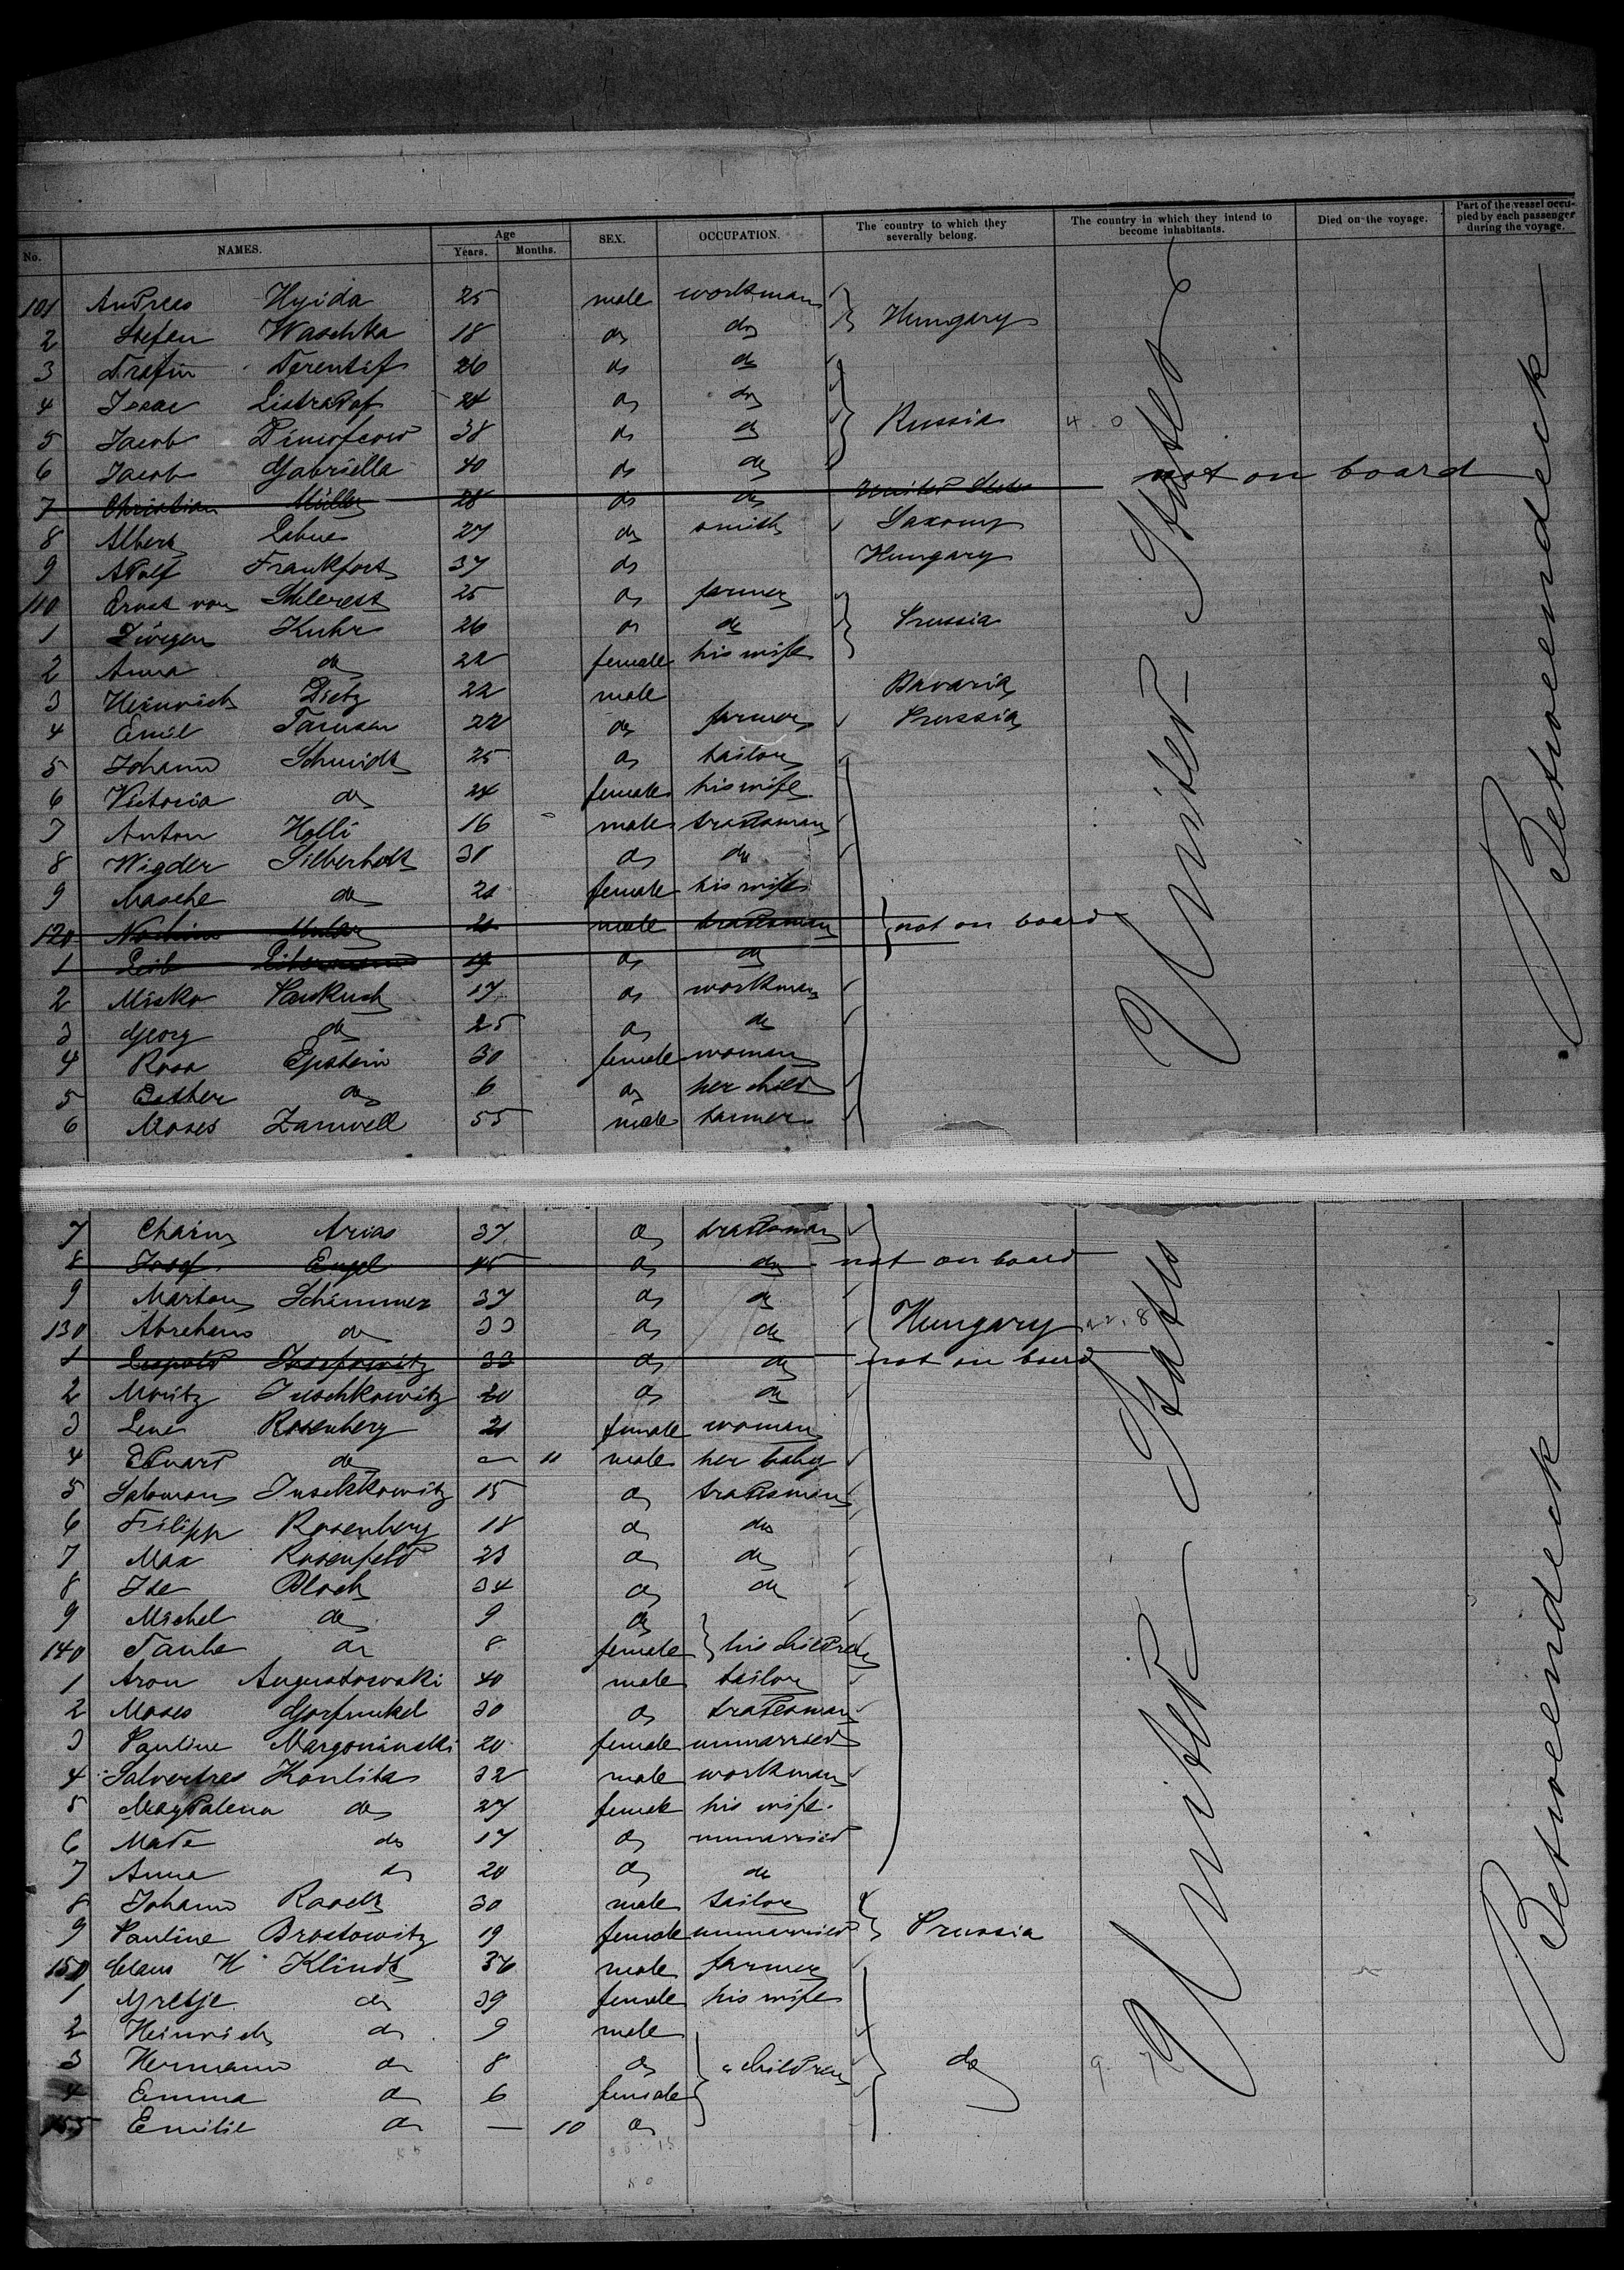 No. NAMES. Age Years. Months. SEX. OCCUPATION. The country to which they severally belong. The country in which they intend to become inhabitants. Died on the voyage. Part of the vessel occupied by each passenger during the voyage.
101 Andreas Hyida 25 male workman Hungary
2 Stefan Waschka 18 do do
3 Trofin Terentif 26 do do
4 Isaac 24 do do Russia
5 Jacob 38 do do
6 Jacob Gabriella 40 do do
7 Christian Müller 28 do do United States not on board
8 Albert 27 do smith Saxony
9 Adolf Frankfort 37 do Hungary
110 Ernst von 25 do farmer
1 Jürgen Kuhr 26 do do Prussia
2 Anna do 22 female his wife
3 Heinrich Dietz 22 male Bavaria
4 Emil 22 do farmer Prussia
5 Johann Schmidt 25 do tailor
6 Victoria do 24 female his wife
7 Anton Holli 16 male tradesman
8 Wigder Silberholt 30 do do
9 Masche do 21 female his wife
120 male tradesman not on board
1 Leib Libermann 19 do do
2 Misko 17 do workman
3 Georg do 25 do do
4 Rosa Epstein 30 female woman
5 Esther do 6 do her child
6 Moses Zamwell 55 male farmer
7 Chaim Arias 37 do tradesman
8 Josef Engel 45 do do not on board
9 Marton Schimmer 37 do do
130 Abraham do 33 do do Hungary
1 Leopold Josefowitz 33 do do not on board
2 Moritz Juschkowitz 20 do do
3 Lene Rosenberg 21 female woman
4 Eduard do — 11 male her baby
5 Salomon Juschkowitz 15 do tradesman
6 Filipp Rosenberg 18 do do
7 Max Rosenfeld 23 do do
8 Ide Bloch 34 do do
9 Michel do 9 do
140 Taube do 8 female his children
1 Aron Augustowski 40 male tailor
2 Moses Gorfunkel 30 do tradesman
3 Pauline Margoninski 20 female unmarried
4 Salvertras Konlita 32 male workman
5 Magdalena do 27 female his wife
6 Made do 17 do unmarried
7 Anna do 20 do do
8 Johann Rasch 30 male tailor
9 Pauline Brostowitz 19 female unmarried Prussia
150 Claus H Klindt 36 male farmer
1 Gretje do 39 female his wife
2 Heinrich do 9 male
3 Hermann do 8 do children do
4 Emma do 6 female
155 Emilie do — 10 do
United States
Betweendeck
United States
Betweendeck